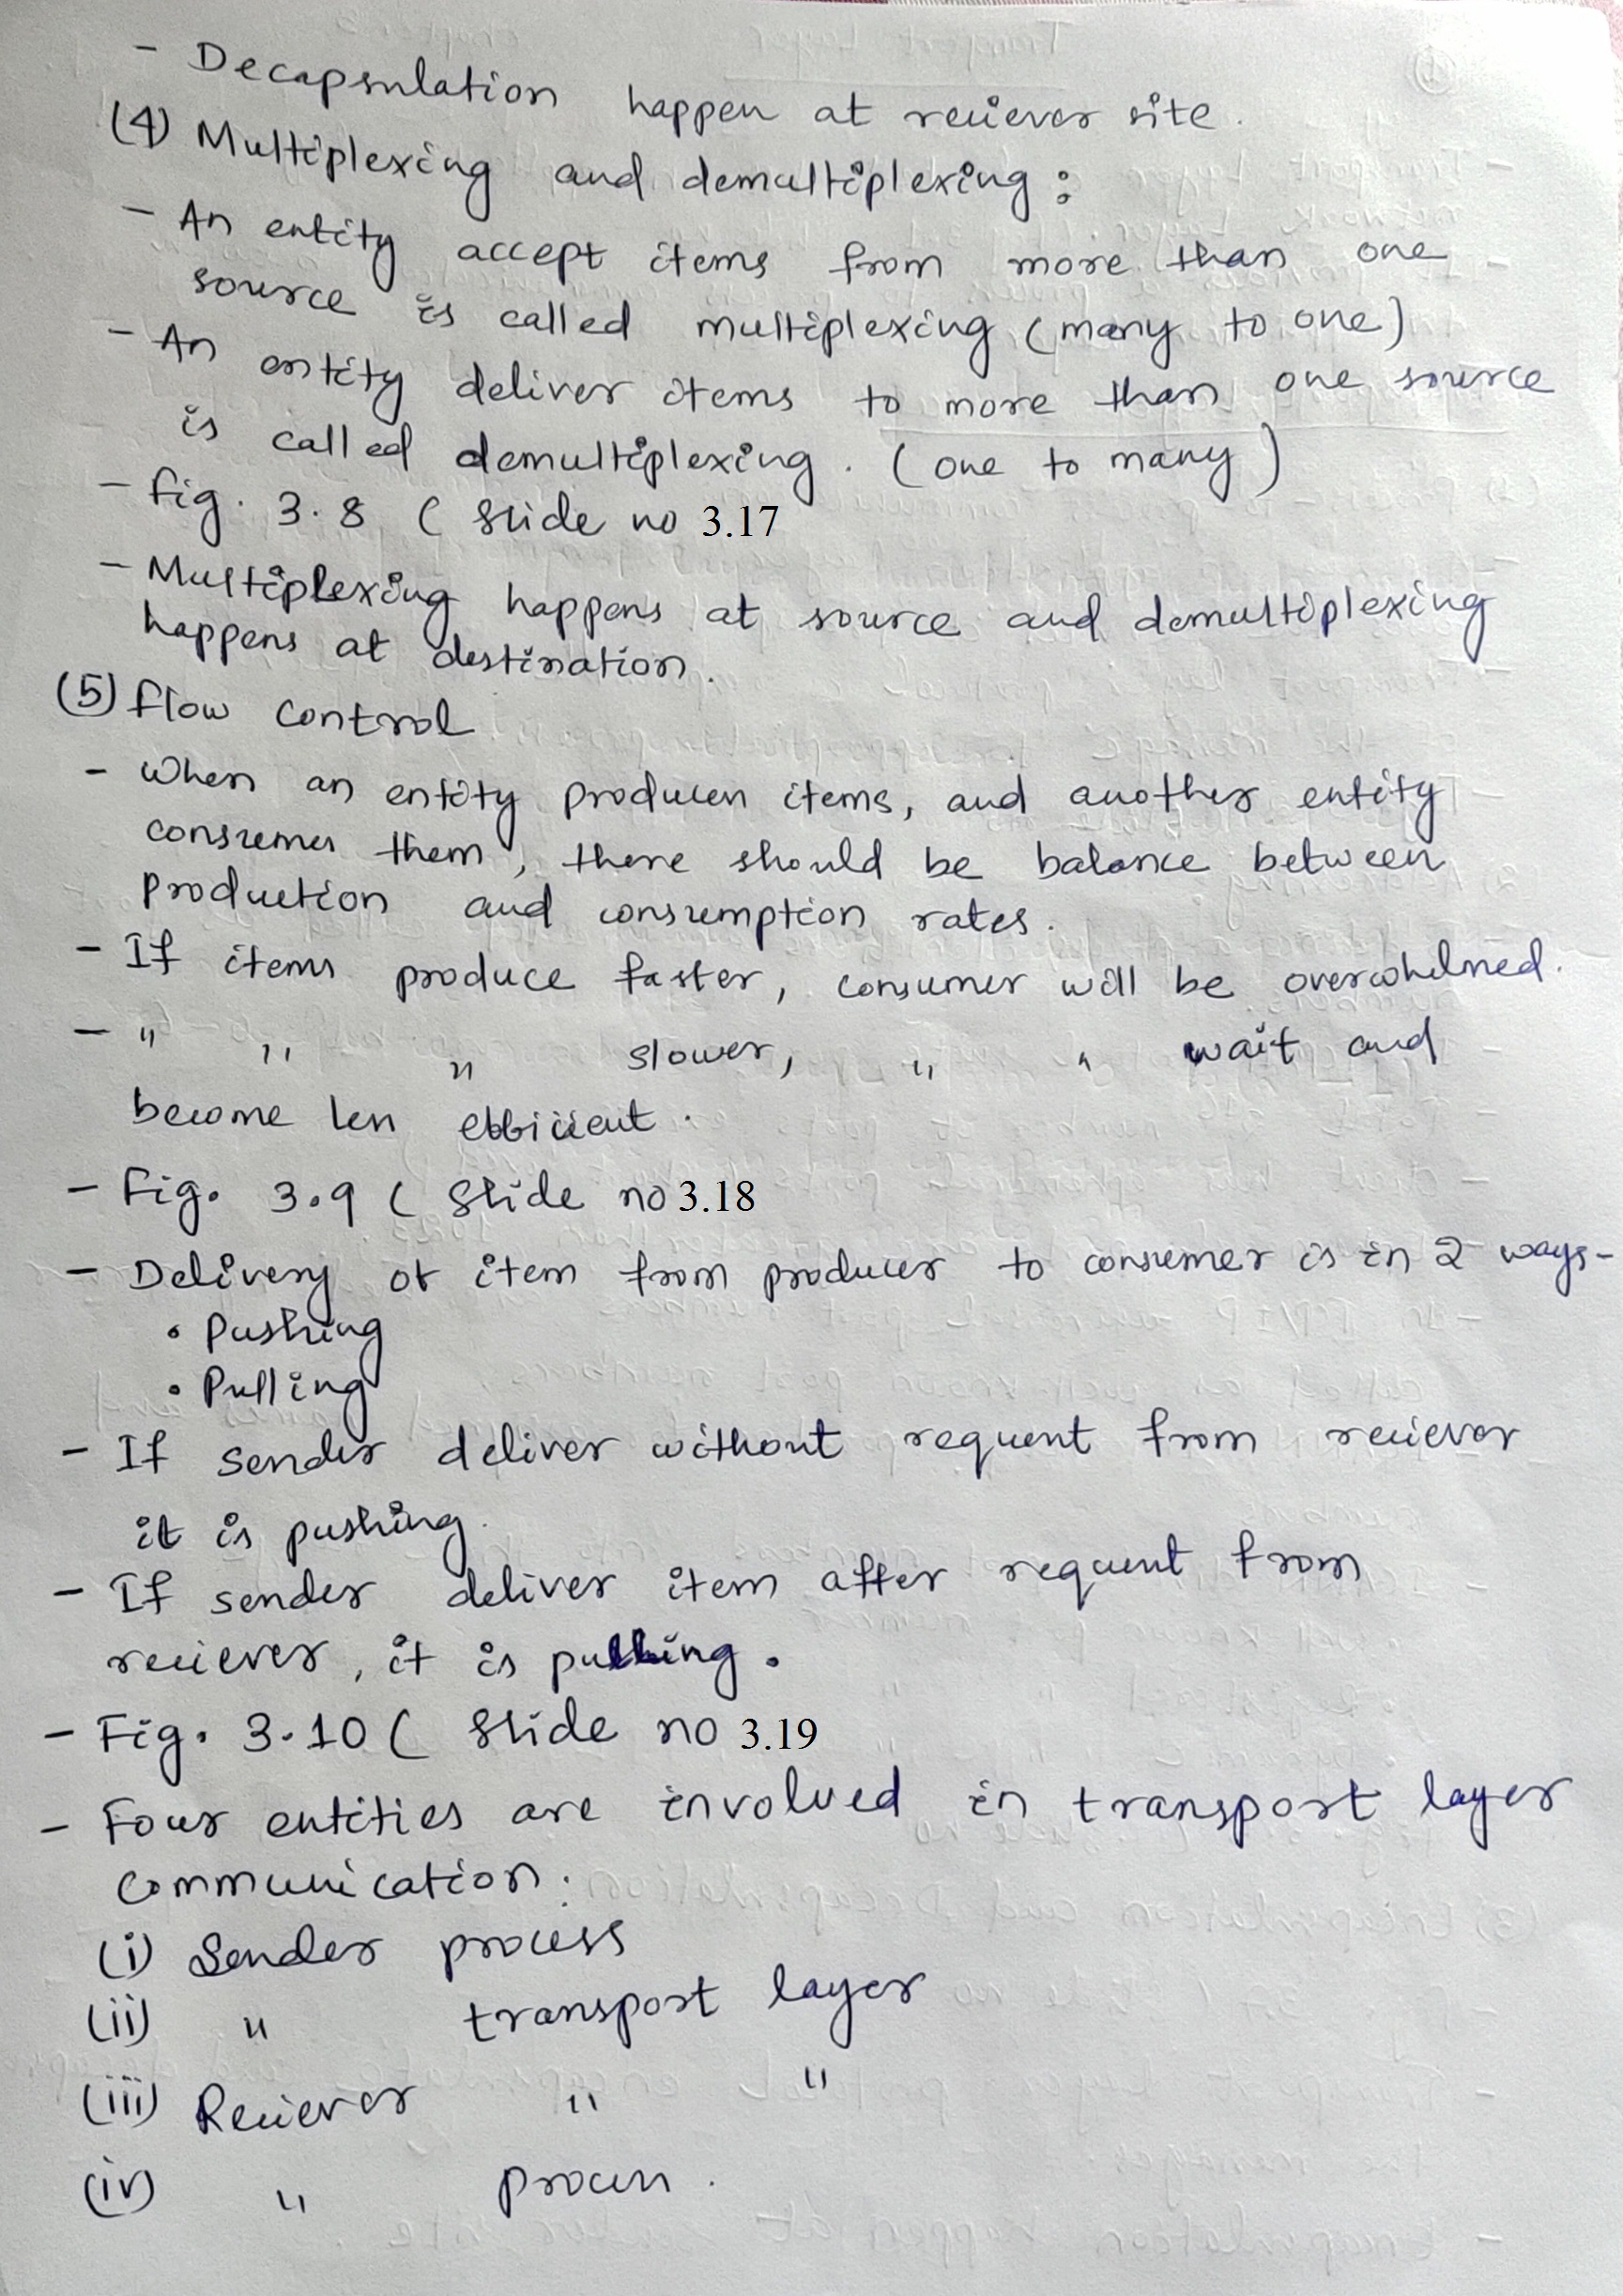 - Decapsulation happen at reciever site.
(4) Multiplexing and demultiplexing :
- An entity accept items from more than one
source is called multiplexing (many to one)
- An entity deliver items to more than one source
is called demultiplexing. (one to many)
- fig. 3.8 ( Slide no 3.17
- Multiplexing happens at source and demultiplexing
happens at destination.
(5) flow control
- When an entity produces items, and another entity
consumes them, there should be balance between
production and consumption rates.
- If items produce faster, consumer will be overwhelmed.
- " " " slower, " " wait and
become less efficient.
- Fig. 3.9 ( Slide no 3.18
- Delivery of item from producer to consumer is in 2 ways-
• Pushing
• Pulling
- If sender deliver without request from reciever
it is pushing.
- If sender deliver item after request from
reciever, it is pulling.
- Fig. 3.10 ( Slide no 3.19
- Four entities are involved in transport layer
communication.
(i) Sender process
(ii) " transport layer
(iii) Reciever " "
(iv) " process.